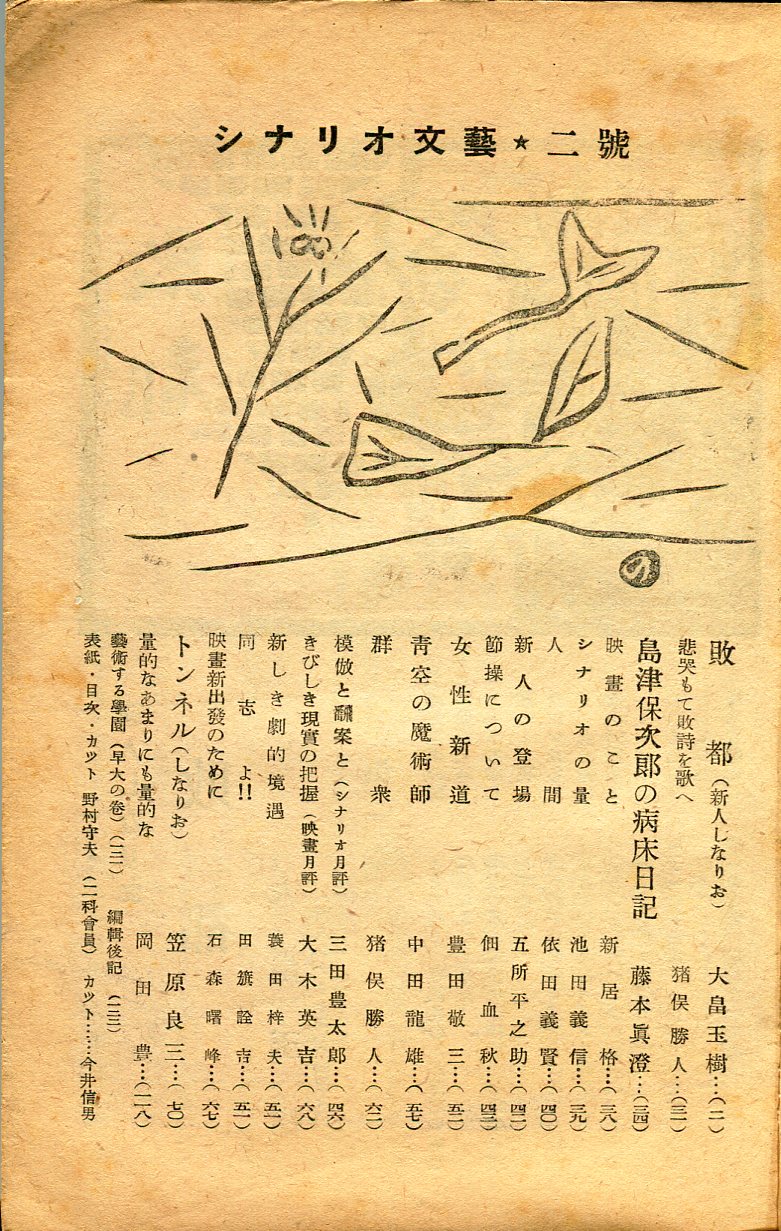 シナリオ文藝★二號
の
敗都（新人しなりお） 大畠玉樹…（二）
悲哭もて敗詩を歌へ 猪俣勝人…（三一）
島津保次郎の病床日記 藤本眞澄…（三四）
映畫のこと 新居格…（三八）
シナリオの量 池田義信…（三九）
人間 依田義賢…（四〇）
新人の登場 五所平之助…（四二）
節操について 佃血秋…（四三）
女性新道 豊田敬三…（五二）
靑空の魔術師 中田龍雄…（五七）
群衆 猪俣勝人…（六二）
模倣と飜案と（シナリオ月評） 三田豊太郎…（四六）
きびしき現實の把握（映畫月評） 大木英吉…（六八）
新しき劇的境遇 蓑田梓夫…（五一）
同志よ!! 田籏詮吉…（五一）
映畫新出發のために 石森曙峰…（六七）
トンネル（しなりお） 笠原良三…（七〇）
量的なあまりにも量的な 岡田豊…（一一八）
藝術する學園（早大の巻）（一三一） 編輯後記（一三二）
表紙・目次・カット 野村守夫（二科會員） カット……今井信男